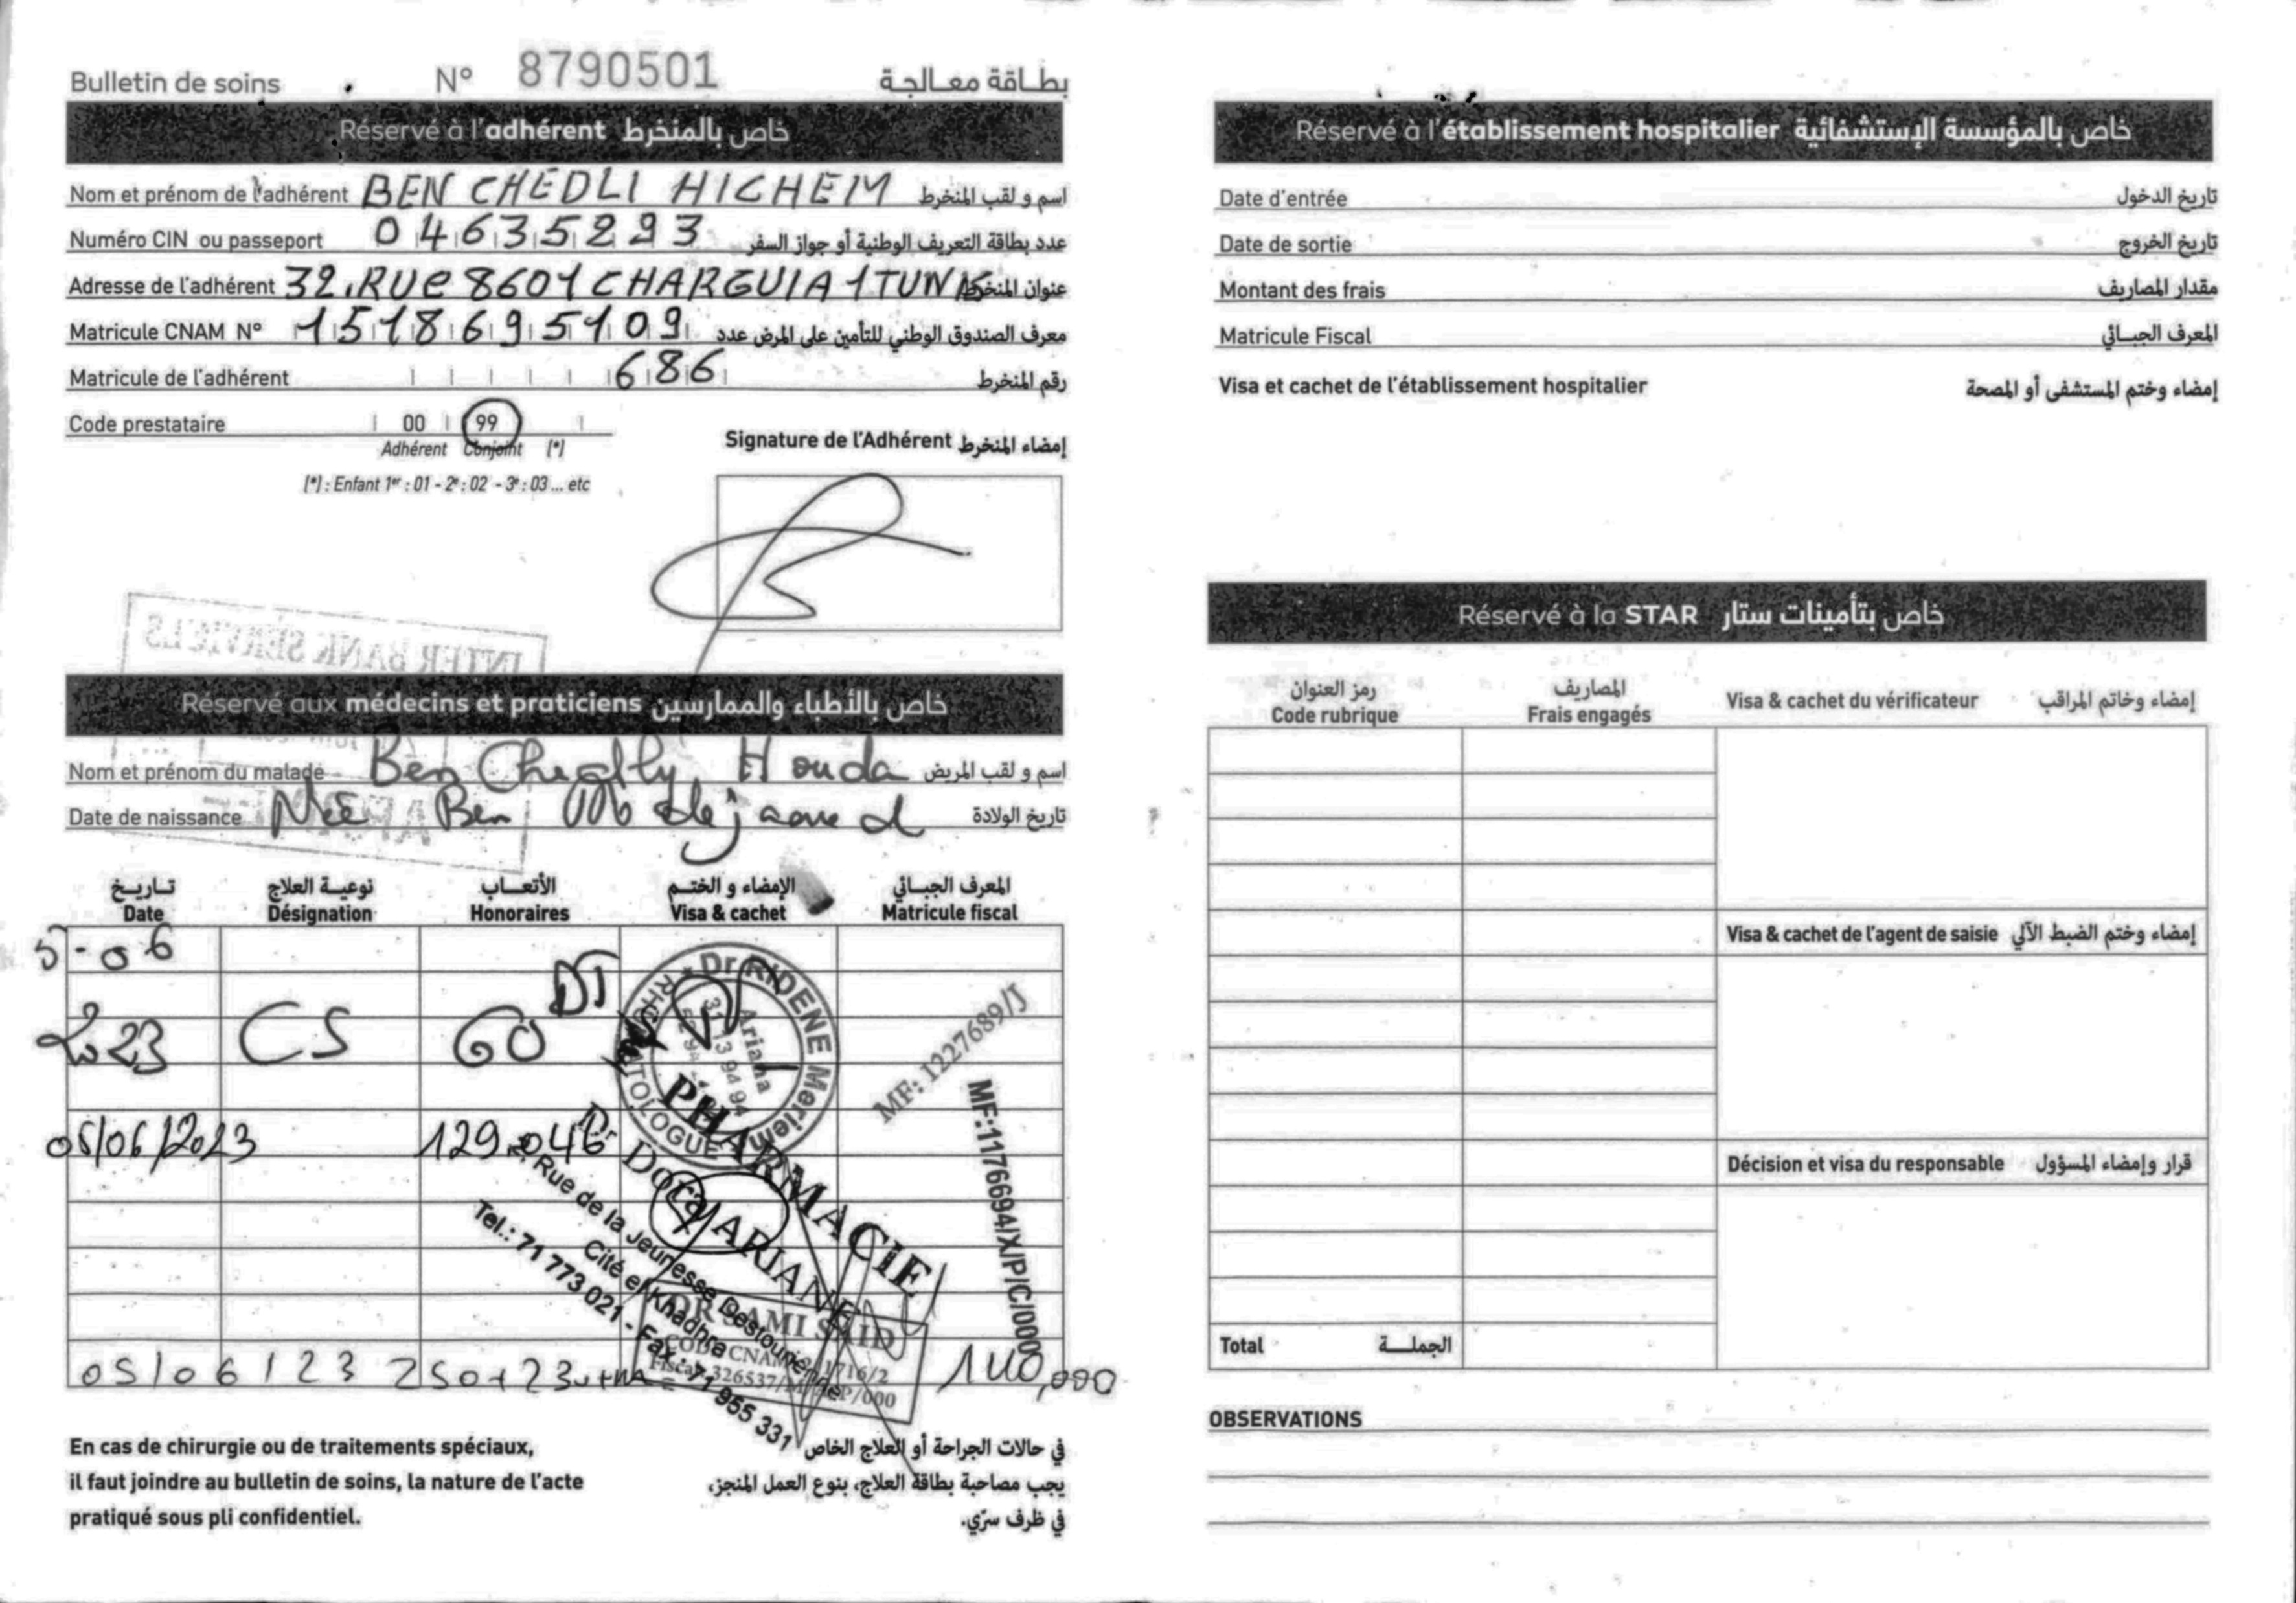 Bulletin de soins N° 8790501 بطاقة معالجة
Réservé à l'adhérent خاص بالمنخرط
Nom et prénom de l'adhérent BEN CHEDLI HICHEM اسم و لقب المنخرط
Numéro CIN ou passeport 04635293 عدد بطاقة التعريف الوطنية أو جواز السفر
Adresse de l'adhérent 32, RUE 8601 CHARGUIA 1 TUNIS عنوان المنخرط
Matricule CNAM N° 1518695109 معرف الصندوق الوطني للتأمين على المرض عدد
Matricule de l'adhérent 686 رقم المنخرط
Code prestataire 00 99
Adhérent Conjoint (*)
(*) : Enfant 1er : 01 - 2e : 02 - 3e : 03 ... etc
Signature de l'Adhérent إمضاء المنخرط
INTER BANK SERVICES
Réservé aux médecins et praticiens خاص بالأطباء والممارسين
Nom et prénom du malade Houda اسم و لقب المريض
Date de naissance Née Ben تاريخ الولادة
تاريخ نوعية العلاج الأتعاب الإمضاء و الختم المعرف الجبائي
Date Désignation Honoraires Visa & cachet Matricule fiscal
5-06
2023 CS 60 DT
Dr RIDENE Meriem
RHUMATOLOGUE
Ariana
MF: 1227689/J
05/06/2023 129.046
PHARMACIE
Dr Dora ARIANE
2, Rue de la Jeunesse Destourienne
Cité el Khadhra
Tel.: 71 773 021 - Fax : 71 955 331
MF:1176694/X/P/C/000
DR SAMI SAID
05/06/23 140,000
En cas de chirurgie ou de traitements spéciaux,
il faut joindre au bulletin de soins, la nature de l'acte
pratiqué sous pli confidentiel.
في حالات الجراحة أو العلاج الخاص
يجب مصاحبة بطاقة العلاج، بنوع العمل المنجز،
في ظرف سرّي.
Réservé à l'établissement hospitalier خاص بالمؤسسة الإستشفائية
Date d'entrée تاريخ الدخول
Date de sortie تاريخ الخروج
Montant des frais مقدار المصاريف
Matricule Fiscal المعرف الجبائي
Visa et cachet de l'établissement hospitalier إمضاء وختم المستشفى أو المصحة
Réservé à la STAR خاص بتأمينات ستار
رمز العنوان المصاريف
Code rubrique Frais engagés Visa & cachet du vérificateur إمضاء وخاتم المراقب
Visa & cachet de l'agent de saisie إمضاء وختم الضبط الآلي
Décision et visa du responsable قرار وإمضاء المسؤول
Total الجملة
OBSERVATIONS